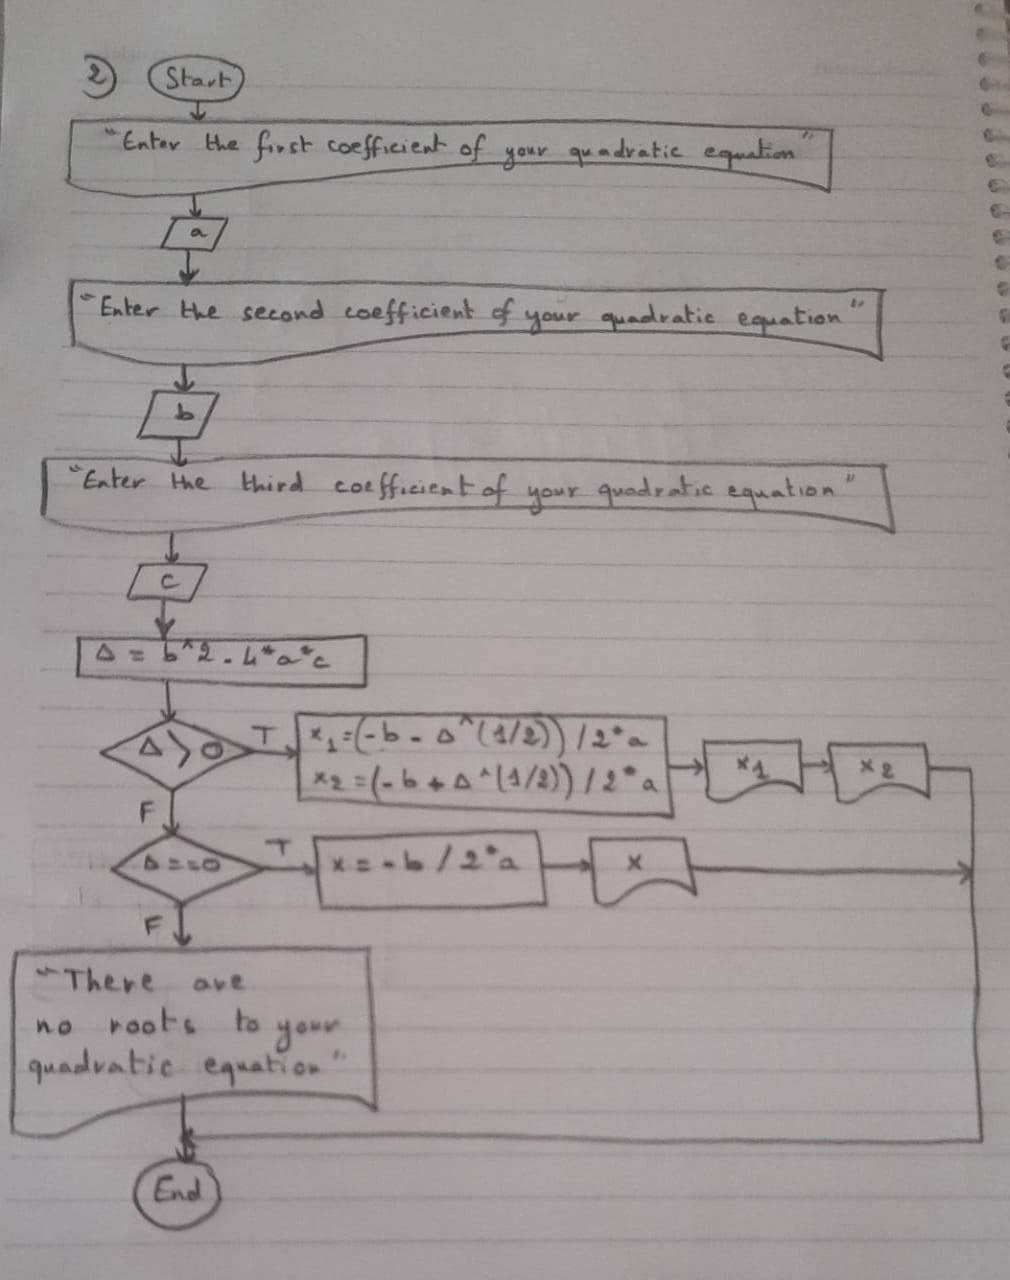 2 Start
"Enter the first coefficient of your quadratic equation"
a
"Enter the second coefficient of your quadratic equation"
b
"Enter the third coefficient of your quadratic equation"
c
Δ = b^2 - 4*a*c
Δ > 0 T
x1=(-b - Δ^(1/2)) / 2*a
x2=(-b + Δ^(1/2)) / 2*a
x1 x2
F
Δ==0 T x = -b / 2*a x
F
"There are
no roots to your
quadratic equation"
End